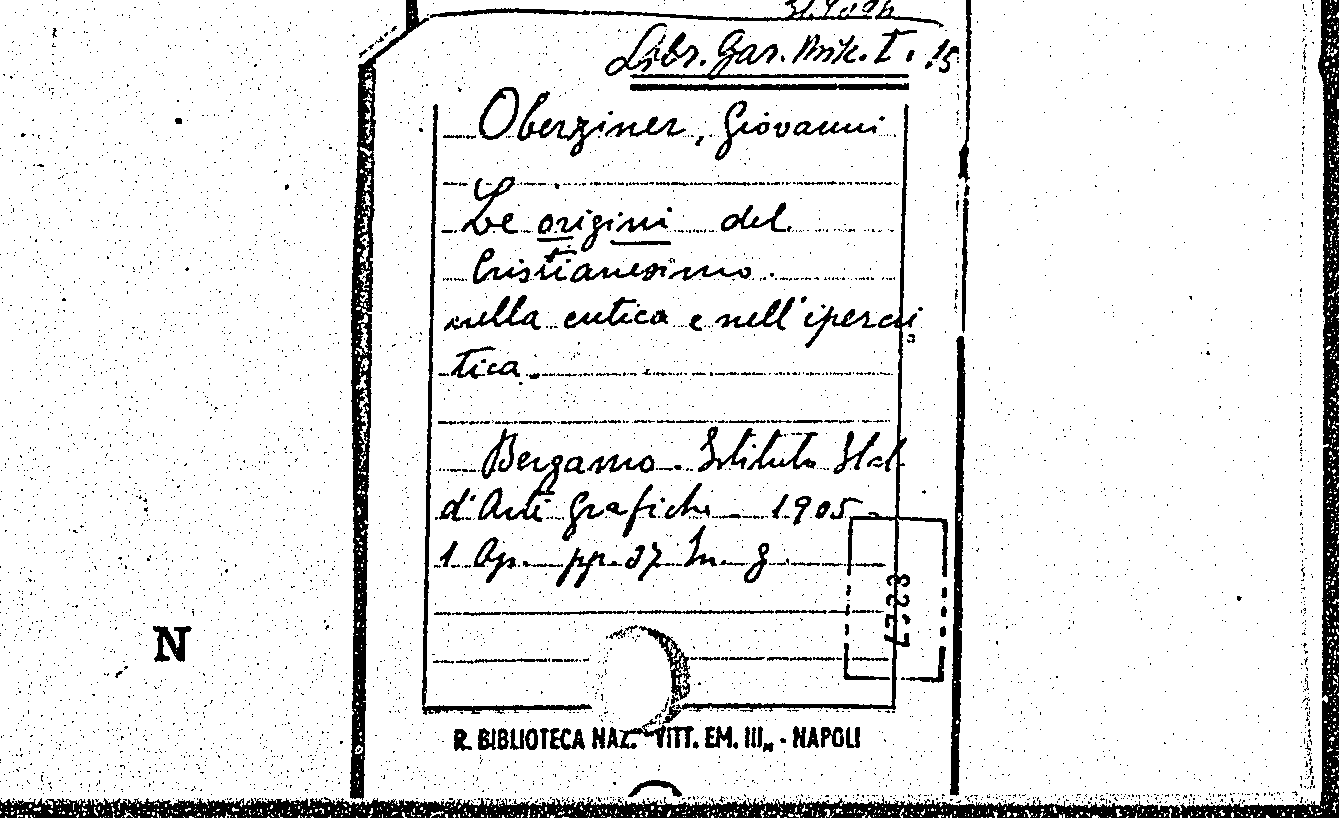 Libr. Gar. Misc. T. 15
Oberziner, Giovanni
Le origini del
Cristianesimo.
nella critica e nell'ipercri
tica.
Bergamo. Istituto Ital.
d'Arti Grafiche - 1905 -
1 Op. pp. 37 In. 8
N
R. BIBLIOTECA NAZ. "VITT. EM. III„ - NAPOLI